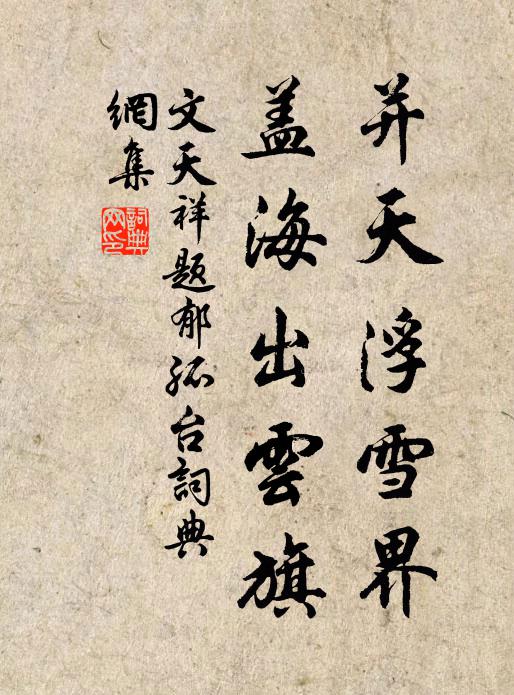 并天浮雪界
盖海出雲旗
文天祥题郁孤台詞典
網集
詞典网印